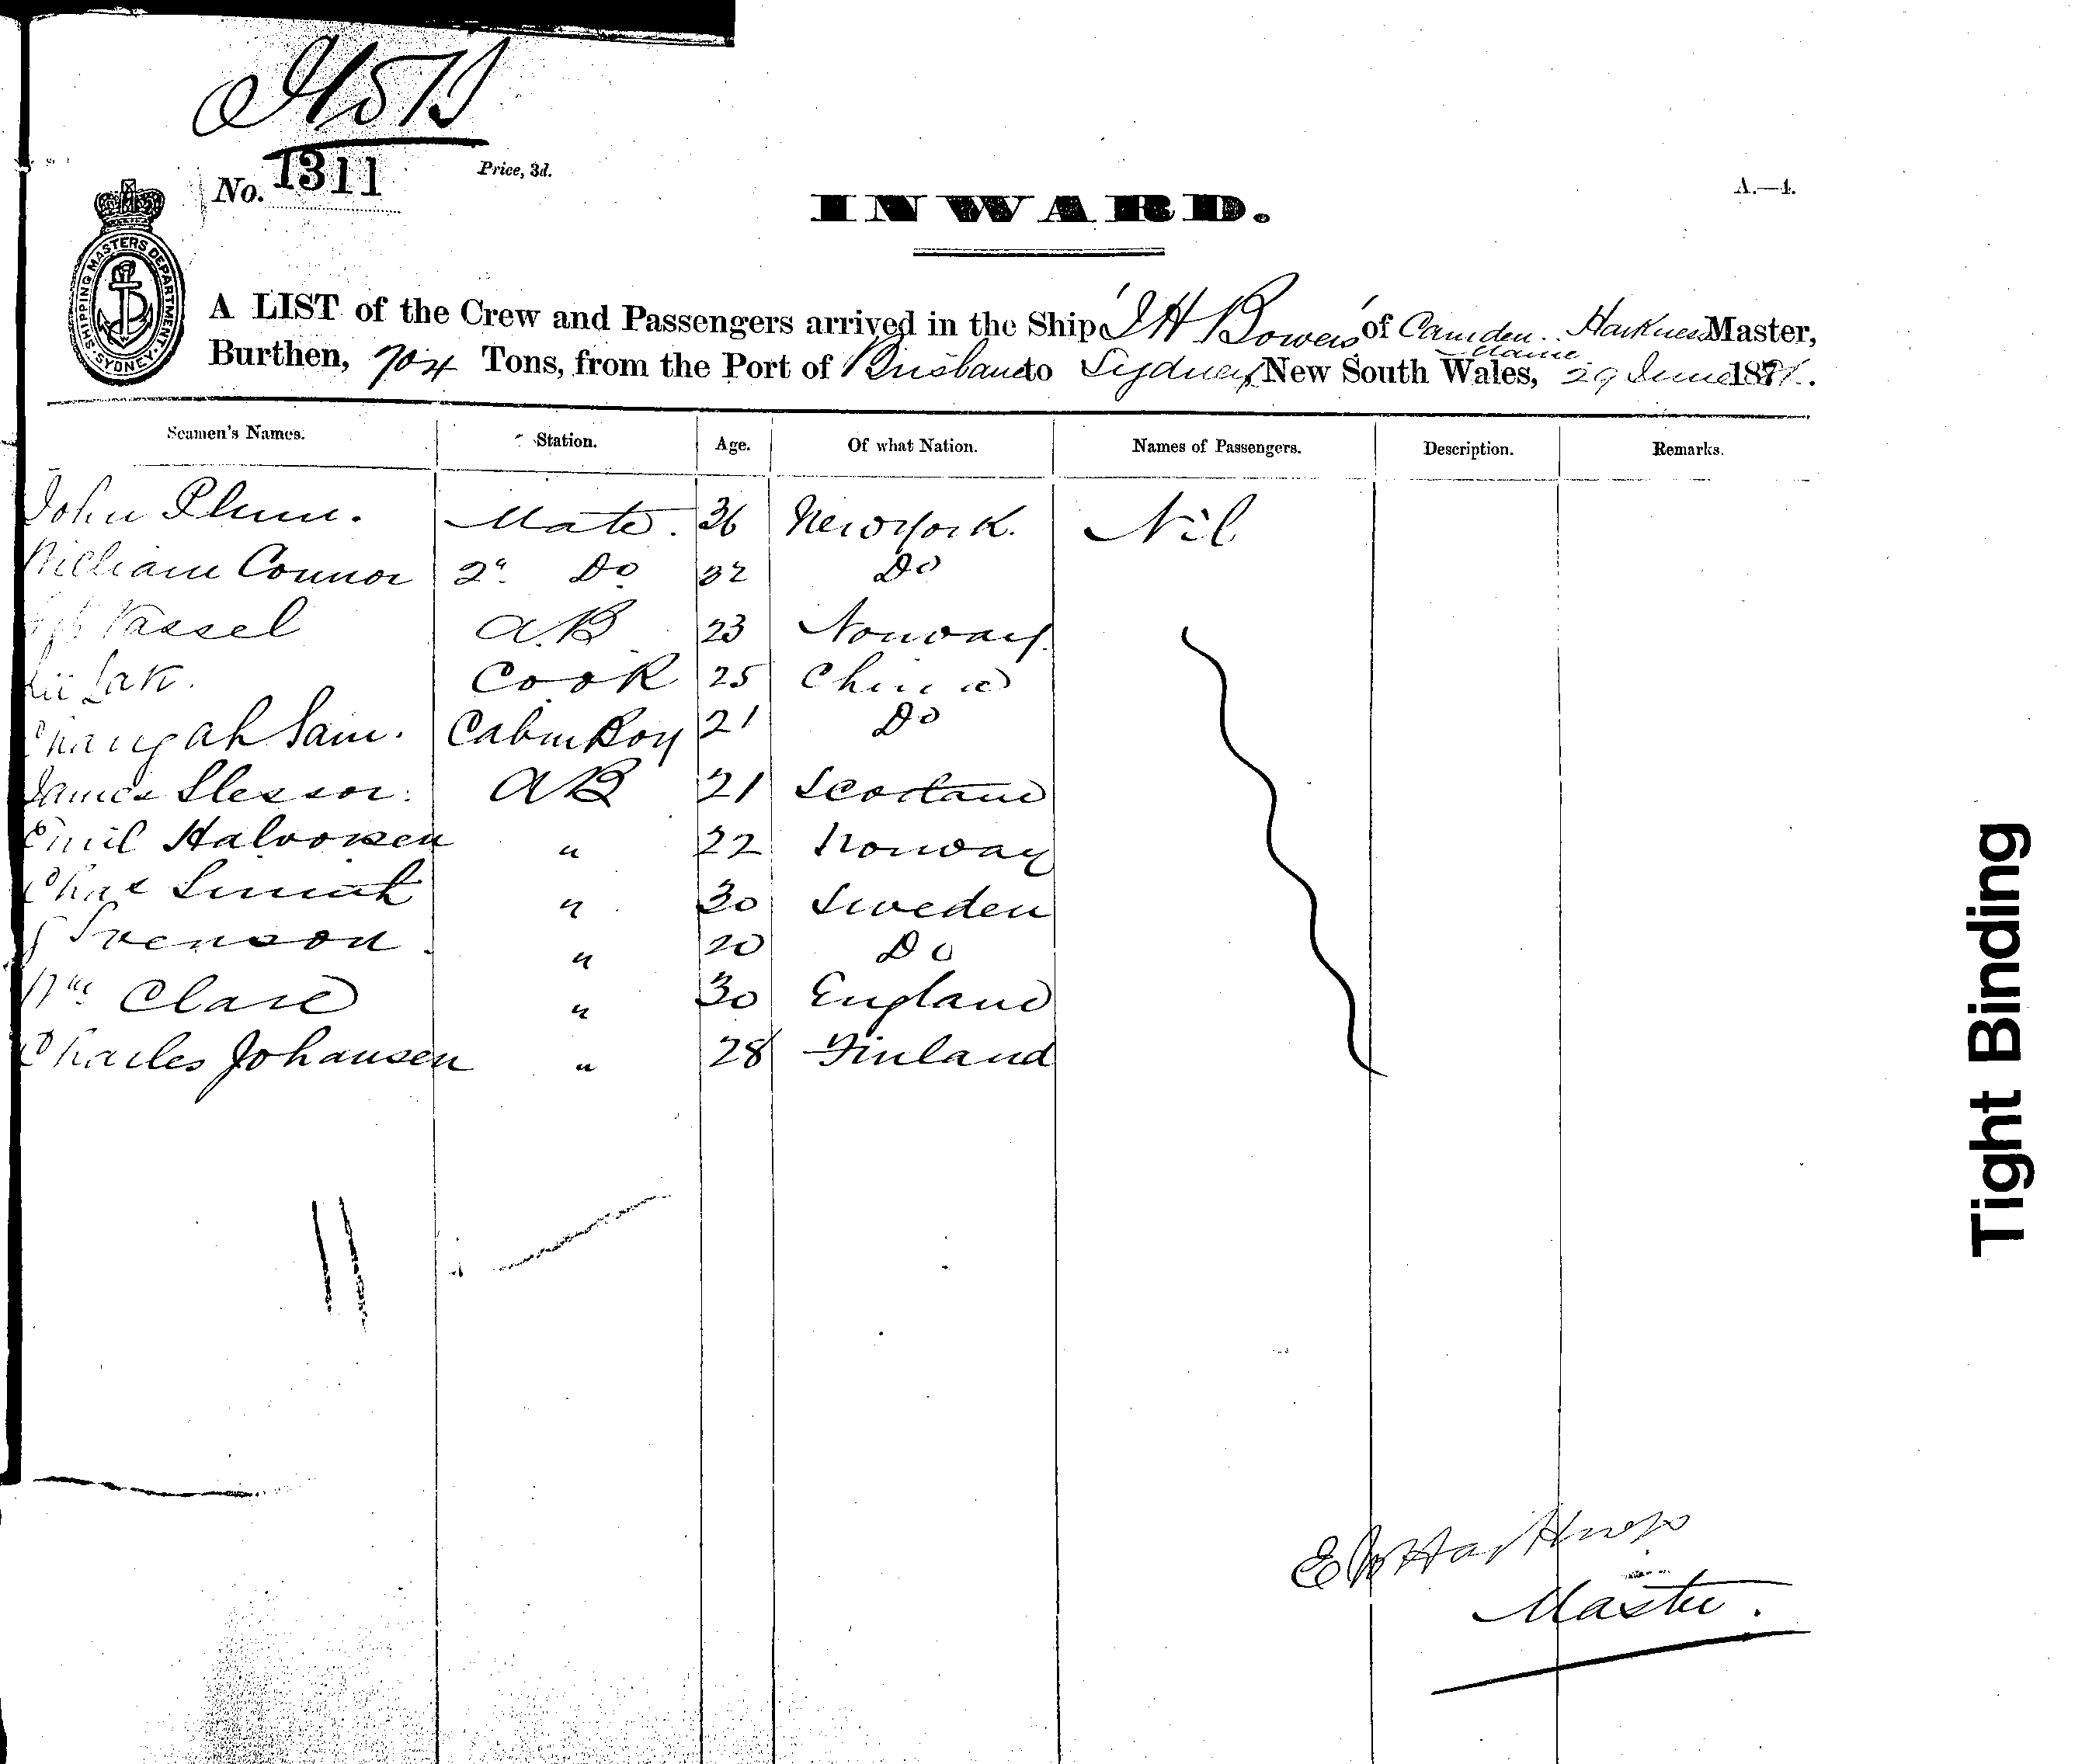 No. 1311
Price, 3d.
A.—4.
INWARD.
SHIPPING MASTERS DEPARTMENT. SYDNEY.
A LIST of the Crew and Passengers arrived in the Ship 'J H Bowers' of Camden Maine Harkness Master,
Burthen, 704 Tons, from the Port of Brisbane to Sydney, New South Wales, 29 June 1881.
Seamen's Names. Station. Age. Of what Nation. Names of Passengers. Description. Remarks.
John Plum. Mate. 36 New York. Nil
William Connor 2d Do 32 Do
Vassel A.B 23 Norway.
Cook 25 China
Sam. Cabin Boy 21 Do
James Slessor. AB 21 Scotland
Emil Halvorsen " 22 Norway
Chas Smith " 30 Sweden
Svenson " 20 Do
Wm Clare " 30 England
Charles Johansen " 28 Finland
11
Harkness
Master.
Tight Binding